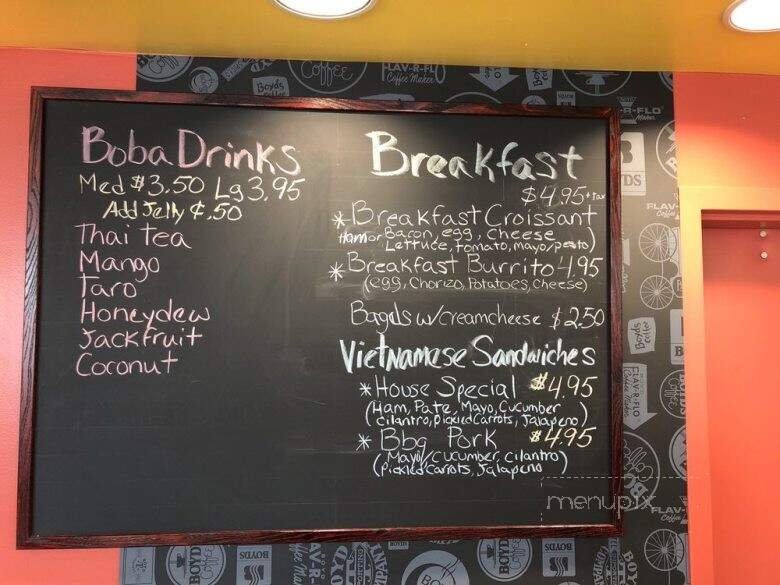 Boba Drinks
Med $3.50 Lg 3.95
Add Jelly ¢.50
Thai tea
Mango
Taro
Honeydew
Jackfruit
Coconut
Breakfast
$4.95+tax
*Breakfast Croissant
(Ham or Bacon, egg, cheese
Lettuce, tomato, mayo/pesto)
*Breakfast Burrito 4.95
(egg, Chorizo, Potatoes, Cheese)
Bagels w/creamcheese $2.50
Vietnamese Sandwiches
*House Special $4.95
(Ham, Pate, Mayo, Cucumber
cilantro, pickled carrots, Jalapeno)
* Bbq Pork $4.95
(Mayo/cucumber, cilantro)
(pickled carrots, Jalapeno)
menupix
Coffee
FLAV-R-FLO
Coffee Maker
Boyds
Coffee
BOYDS